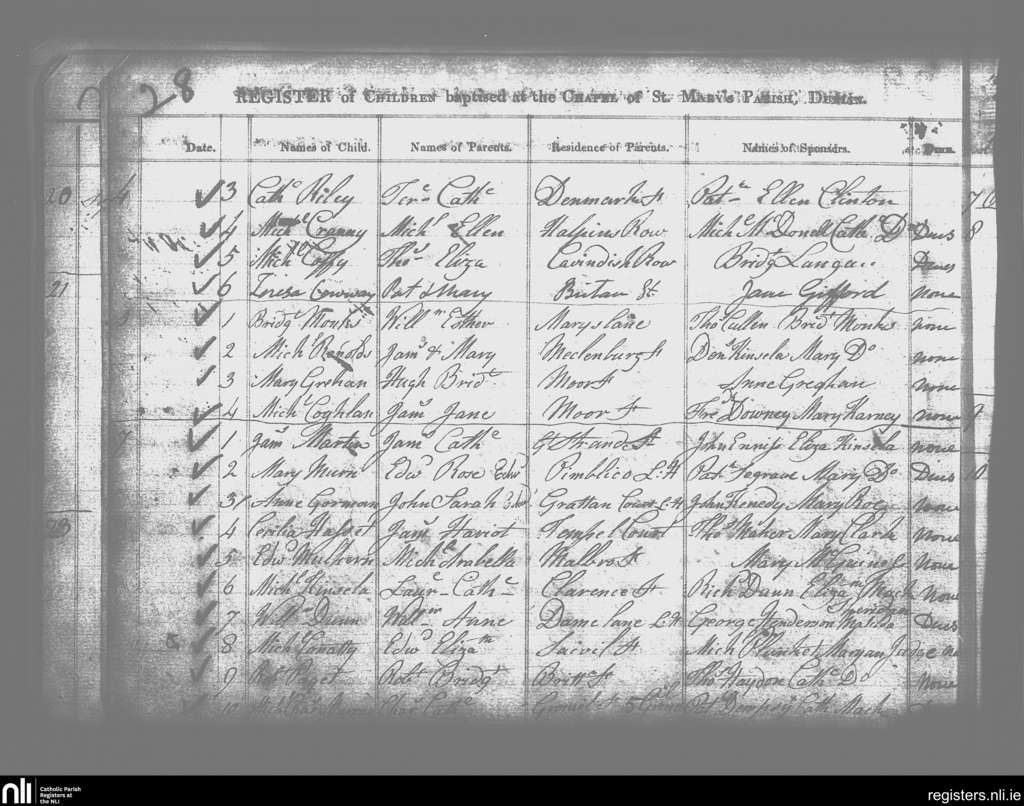 28
REGISTER of CHILDREN baptised at the CHAPEL of St. MARY'S PARISH, DUBLIN.
Date. Names of Child. Names of Parents. Residence of Parents. Names of Sponsors. Dues.
20 4 3 Cathe Riley Ter Cathe Denmark St Pat Ellen Clinton 76
4 Cranny Michl Ellen Halpins Row Mich McDonell Cath Do Dues 8
5 Mich Coffy Thos Eliza Cavindish Row Bridgt Langan Dues
21 6 Teresa Conway Pat & Mary Britan St. Jane Gifford none
1 Bridgt Monks Willm Esther Marys lane Thos Cullen Bridt Monks none
2 Michl Renolds Jams & Mary Meclenburg St Dens Kinsela Mary Do none
3 Mary Grehan Hugh Bridt Moor St Anne Greghan none
4 Michl Coghlan Jams Jane Moor St Downey Mary Karney none 9
7 1 Jams Martin Jams Cathe Gt Strand St John Enniss Eliza Kinsela none
2 Mary Edwd Rose Edwd Pimblico L.H Patk Segrave Mary Do Dues 10
3 Anne Gorman John Sarah Grattan Court L.H John Kenedy Mary none
23 4 Cecilia Jams Hariot Tempel Court Thos Maher Mary Clark none
5 Edwd Mulhern Mich Arabella Malbro St Mary McGuines none
6 Michl Kinsela Laur Cathe Clarence St Richd Dunn Eliza none
7 Willm Dunn Willm Anne Dame lane L.H George Henderson Matilda Sheridan Dues
8 Michl Conatty Edwd Elizath St Mich Plunket Maryan Judge
9 Robt Paget Robt Bridgt Britt St Thos Haydon Cathe Do none
10 Cathe St Patk Dempsey Cath
nli
Catholic Parish
Registers at
the NLI
registers.nli.ie